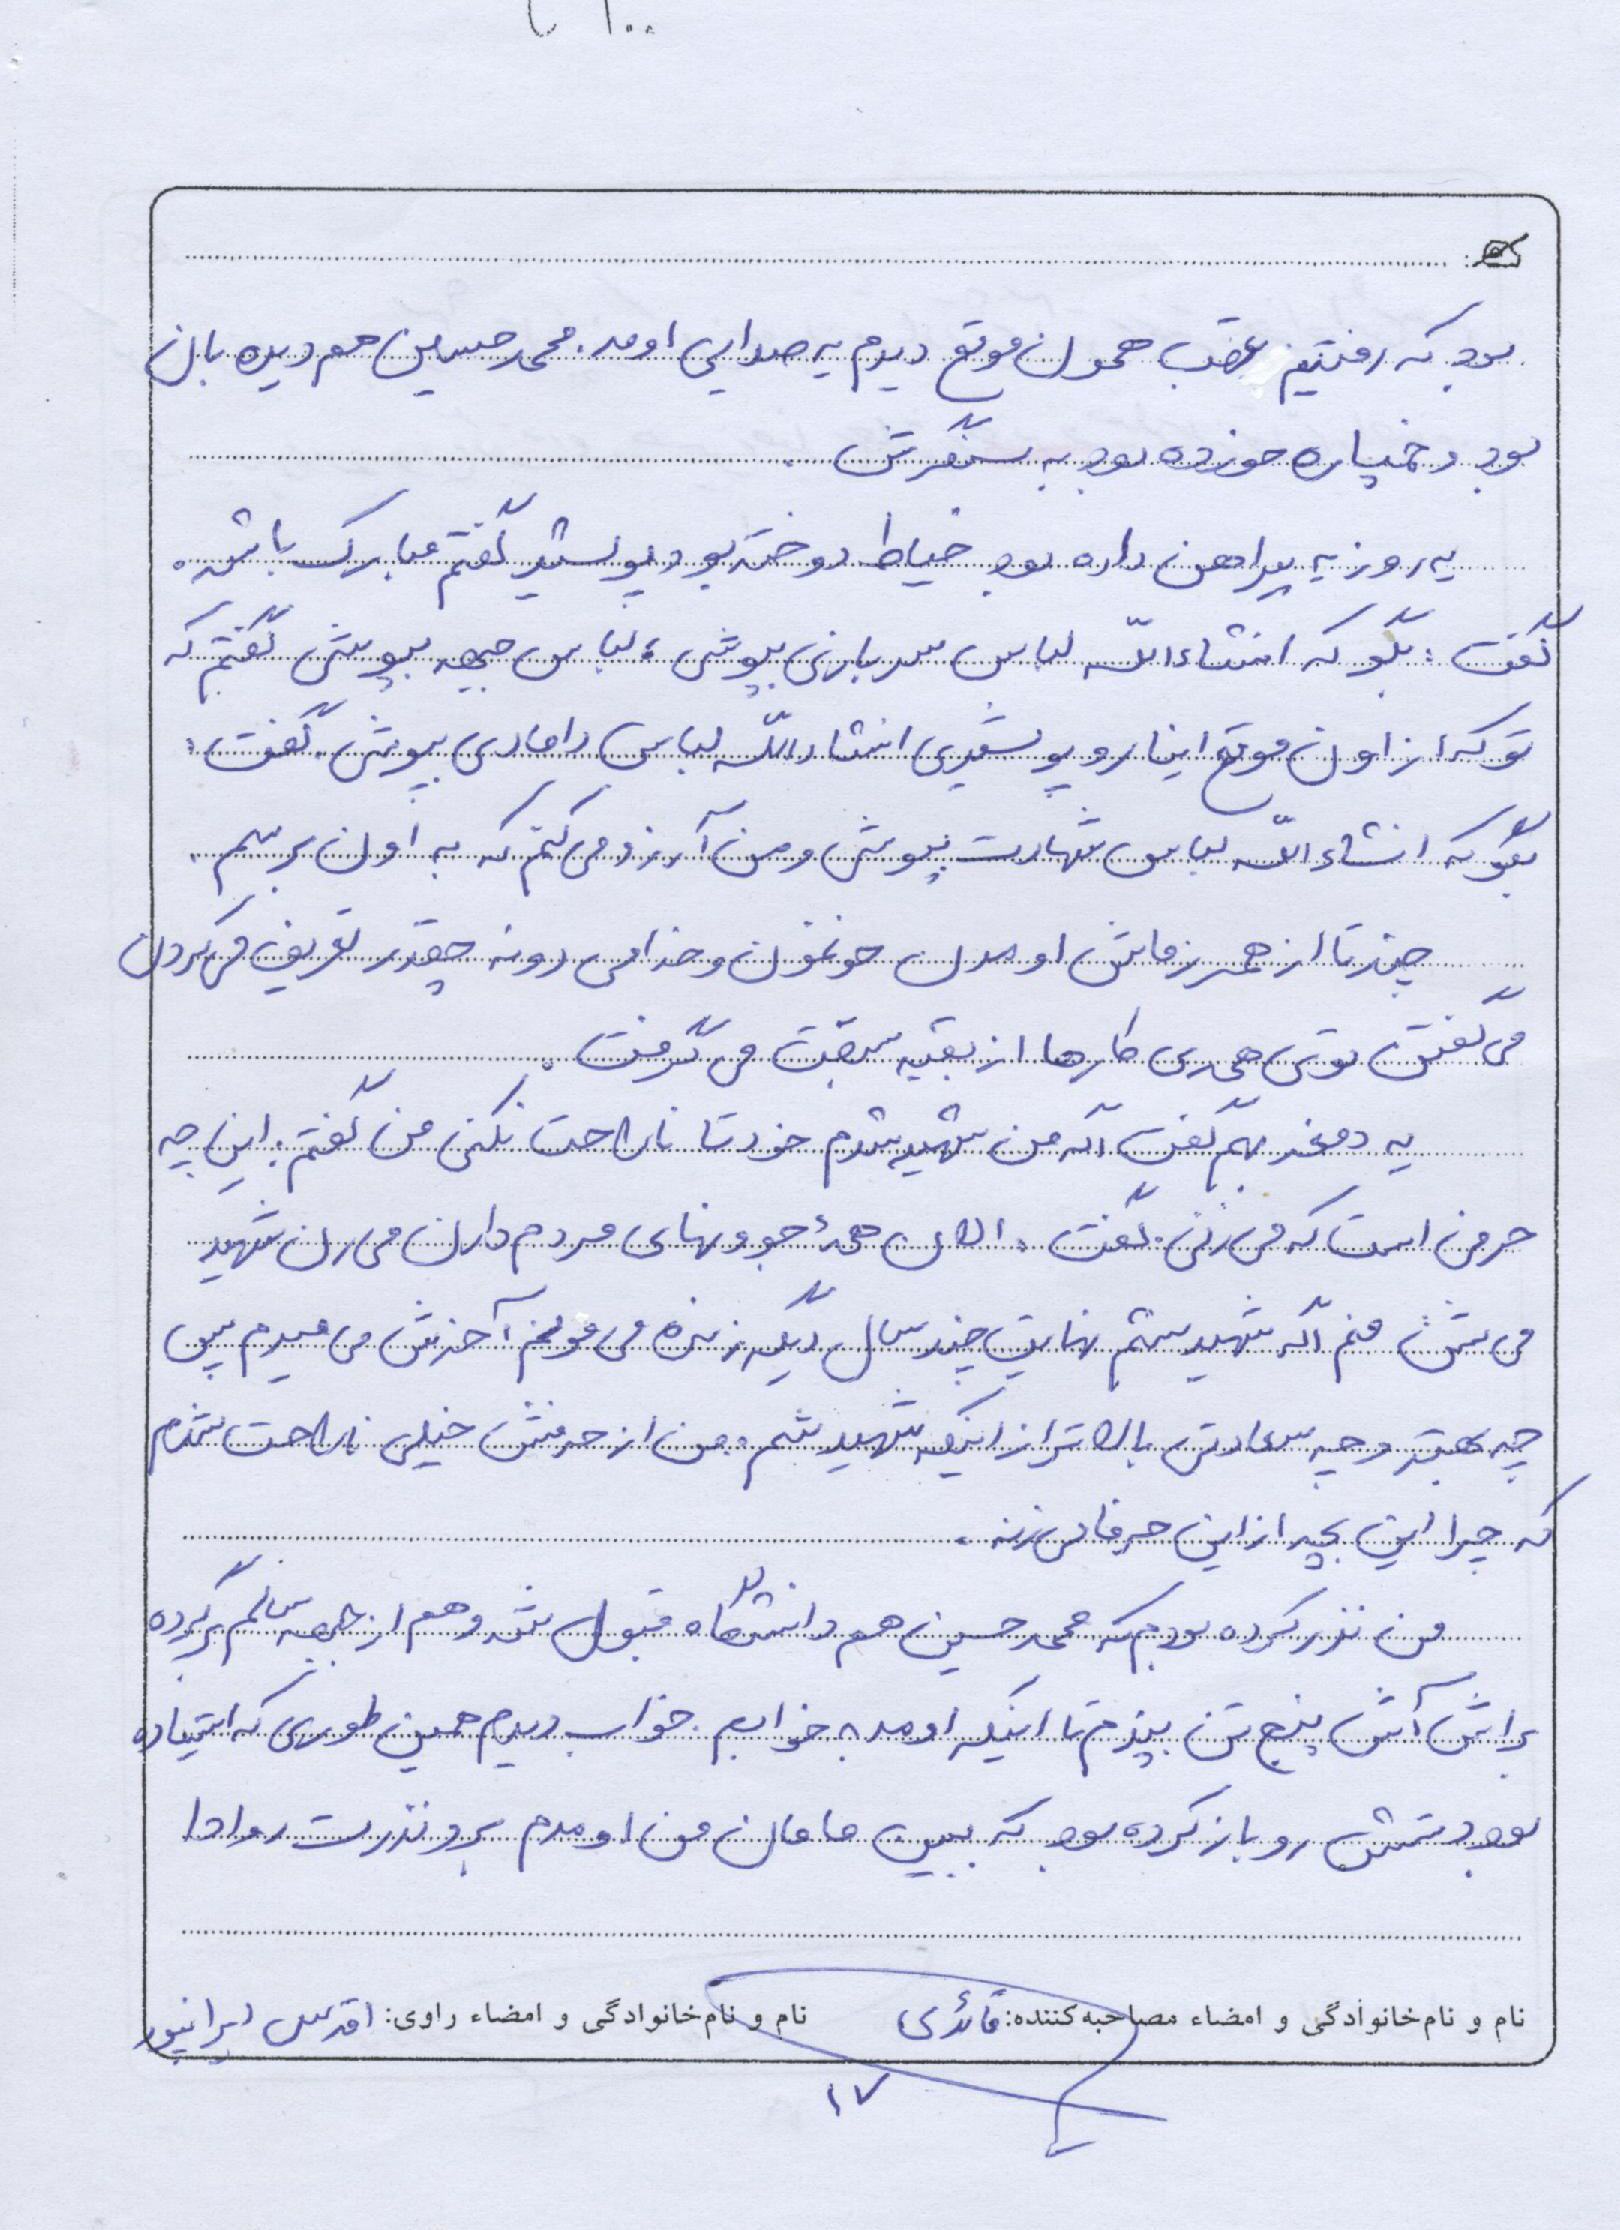 ۱۰۰
بود که رفتیم عقب همون موقع دیدم یه صدایی اومد. محمدحسین هم دیده بان
بود و خمپاره خورده بود به سنگرش.
یه روز یه پیراهن داده بود خیاط دوخته بود پوشید گفتم مبارک باشه.
گفت: بگو که انشاءالله لباس سربازی بپوشی، لباس جبهه بپوشی گفتم که
تو که از اون موقع اینا رو پوشیدی انشاءالله لباس دامادی بپوشی. گفت:
بگو که انشاءالله لباس شهادت بپوشی و من آرزو می کنم که به اون برسم.
چند تا از همرزماش اومدن خونمون و خدا می دونه چقدر تعریف می کردن
می گفتن توی همه ی کارها از بقیه سبقت می گرفت.
یه دفعه بهم گفت اگه من شهید شدم خودتا ناراحت نکنی من گفتم: این چه
حرفی است که می زنی. گفت: الان همهٔ جوونهای مردم دارن می رن شهید
می شن منم اگه شهید نشم نهایت چند سال دیگه زنده می مونم آخرش می میرم پس
چه بهتر و چه سعادتی بالاتر از اینکه شهید شم. من از حرفش خیلی ناراحت شدم
که چرا این بچه از این حرفا می زنه.
من نذر کرده بودم که محمدحسین هم دانشگاه قبول شه و هم از جبهه سالم برگرده
براش آش پنج تن بپزم تا اینکه اومد به خوابم. خواب دیدم همین طوری که ایستاده
بود دستش رو باز کرده بود که ببین مامان من اومدم برو نذرت رو ادا
نام و نام‌خانوادگی و امضاء مصاحبه‌کننده: قائدی نام و نام‌خانوادگی و امضاء راوی: اقدس ایرانپور
۱۷